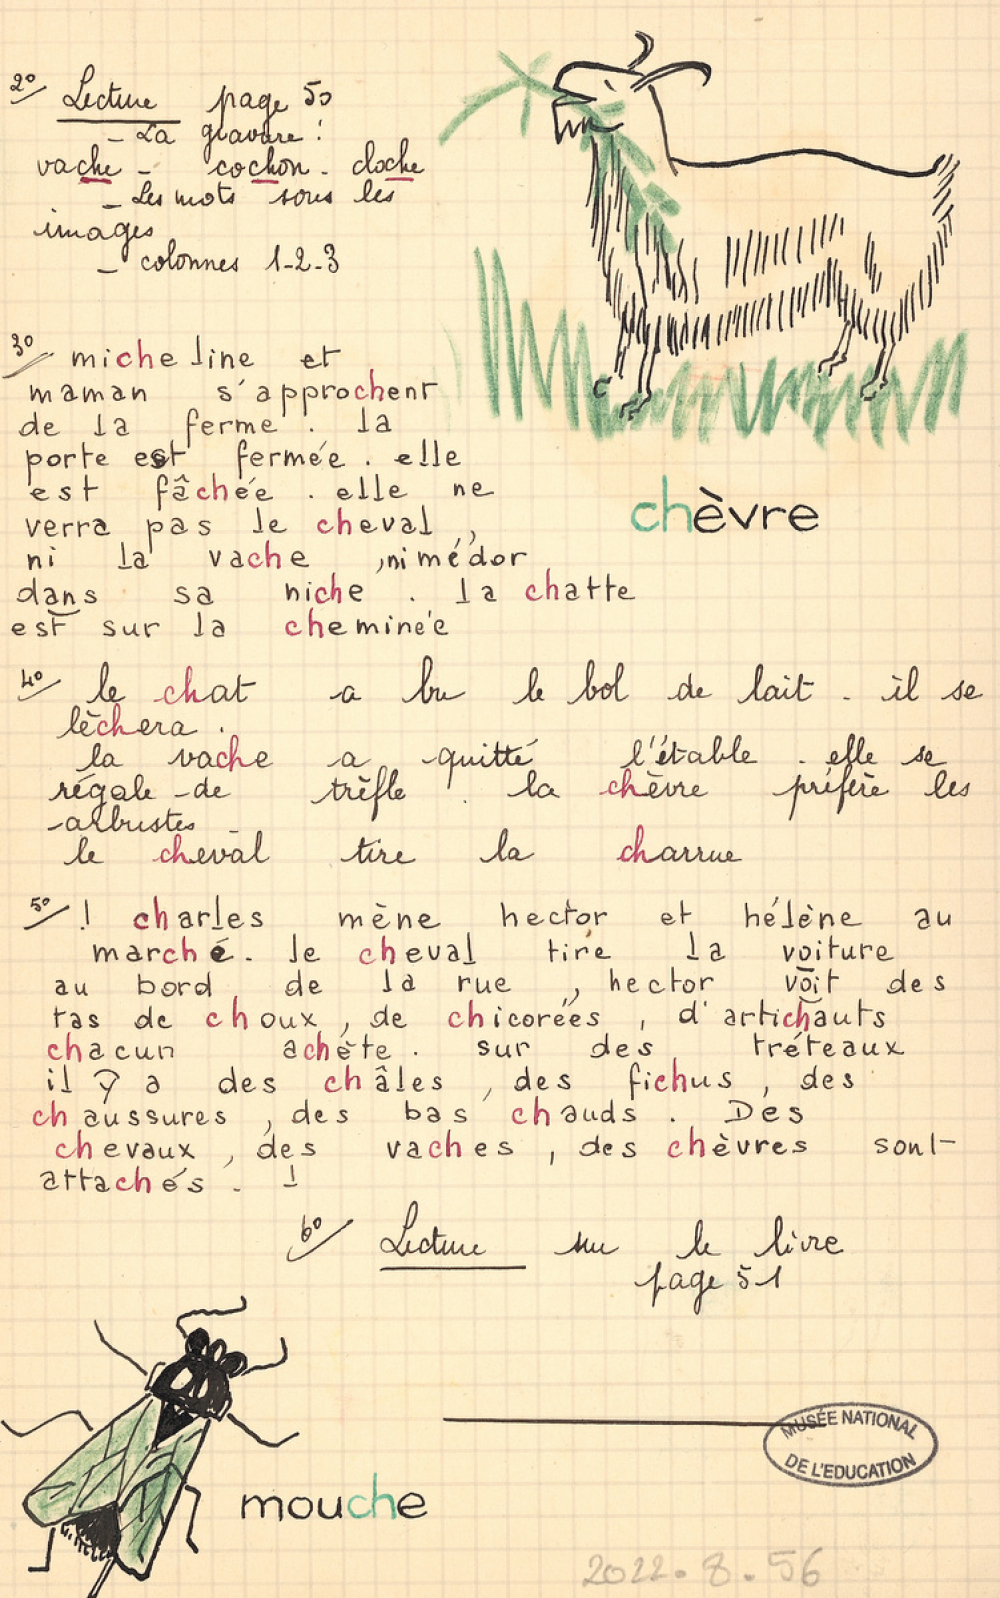 2° Lecture page 50
- La gravure :
vache - cochon - cloche
- Les mots sous les
images
- colonnes 1-2-3
3° micheline et
maman s'approchent
de la ferme . la
porte est fermée . elle
est fâchée . elle ne
verra pas le cheval ,
ni la vache , ni médor
dans sa niche . la chatte
est sur la cheminée
chèvre
4° le chat a bu le bol de lait . il se
lèchera .
la vache a quitté l'étable . elle se
régale de trèfle . la chèvre préfère les
arbustes .
le cheval tire la charrue
5° ! charles mène hector et hélène au
marché . le cheval tire la voiture
au bord de la rue , hector voit des
tas de choux , de chicorées , d'artichauts
chacun achète . sur des tréteaux
il y a des châles , des fichus , des
chaussures , des bas chauds . Des
chevaux , des vaches , des chèvres sont
attachés . !
6° Lecture sur le livre
page 51
MUSÉE NATIONAL
DE L'EDUCATION
mouche
2022.8.56